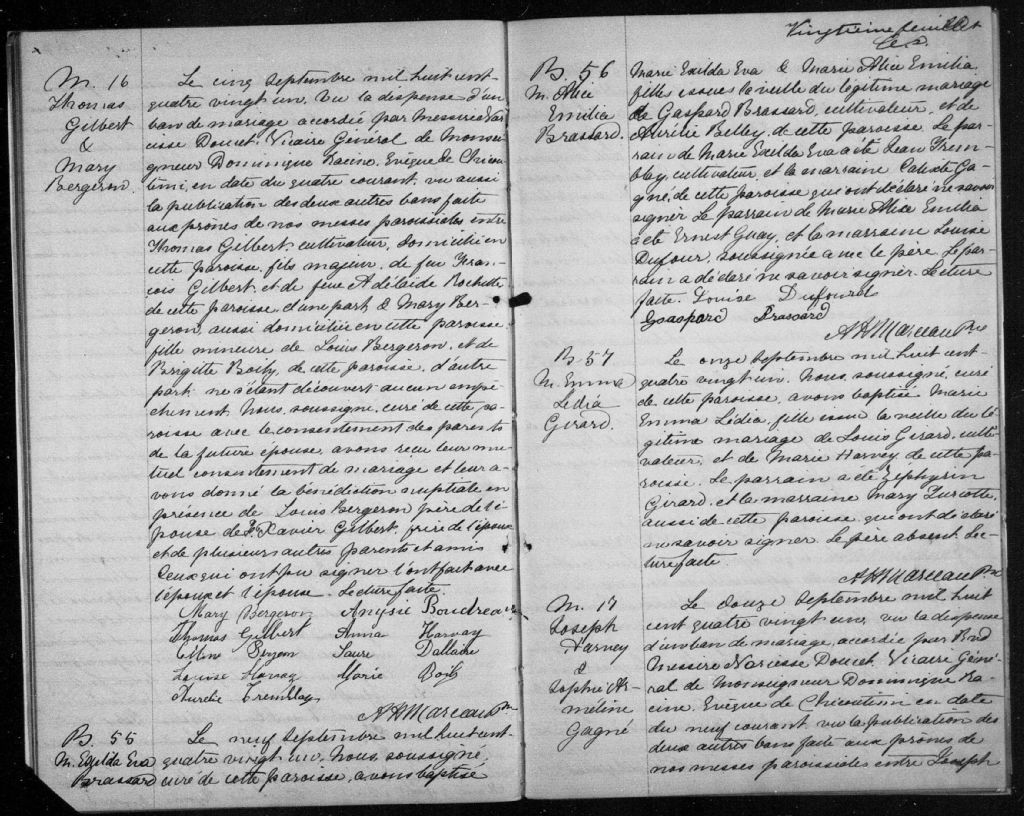 M. 16
Thomas
Gilbert
&
Mary
Bergeron.
Le cinq Septembre mil huit cent-
quatre vingt un, vu la dispense d'un
ban de mariage accordée par Messire Nar-
cisse Doucet, Vicaire Général de Monsei-
gneur Dominique Racine, Evêque de Chicou-
timi, en date du quatre courant, vu aussi
la publication des deux autres bans faite
aux prônes de nos messes paroissiales entre
Thomas Gilbert, cultivateur, domicilié en
cette paroisse, fils majeur de feu Fran-
çois Gilbert, et de feue Adelaide Rochette
de cette paroisse, d'une part, & Mary Ber-
geron, aussi domiciliée en cette paroisse,
fille mineure de Louis Bergeron, et de
Brigitte Boily, de cette paroisse, d'autre
part: ne s'étant découvert aucun empê-
chement Nous, soussigné, curé de cette pa-
roisse avec le consentement des parents
de la future épouse, avons reçu leur mu-
tuel consentement de mariage et leur a-
vons donné la bénédiction nuptiale en
présence de Louis Bergeron père de l'é-
pouse de Frs Xavier Gilbert, frère de l'époux
et de plusieurs autres parents et amis
Ceux qui ont pu signer l'ont fait avec
l'époux et l'épouse. Lecture faite.
Mary Bergeron Boudreau
Thomas Gilbert Anna Harvay
Laure Dallaire
Louise Marie Boily
Aurélie Tremblay
A H Marceau Ptre
B. 55
M. Exilda Eva
Brassard
Le neuf Septembre mil huit cent-
quatre vingt un, Nous, soussigné,
curé de cette paroisse, avons baptisé
Vingtième feuillet
B. 56
M. Alice
Emilia
Brassard.
Marie Exilda Eva & Marie Alice Emilia,
filles issues la veille du légitime mariage
de Gaspard Brassard, cultivateur, et de
Aurélie Belley, de cette paroisse. Le par-
rain de Marie Exilda Eva a été Jean Trem-
blay, cultivateur, et la marraine Calixte Ga-
gné, de cette paroisse qui ont déclaré ne savoir
signer. Le parrain de Marie Alice Emilia
a été Ernest Guay, et la marraine Louise
Dufour, soussignée avec le père. Le par-
rain a déclaré ne savoir signer. Lecture
faite. Louise Dufourd
Gaspard Brassard
A H Marceau Ptre
B. 57
M. Emma
Lédia
Girard.
Le onze Septembre mil huit cent-
quatre vingt un, Nous, soussigné, curé
de cette paroisse, avons baptisé Marie
Emma Lédia, fille issue la veille du lé-
gitime mariage de Louis Girard, culti-
vateur, et de Marie Harvey de cette pa-
roisse. Le parrain a été Zéphyrin
Girard, et la marraine Mary Turcotte,
aussi de cette paroisse, qui ont déclaré
ne savoir signer. Le père absent. Lec-
ture faite.
A H Marceau Ptre
M. 17
Joseph
Harvey
&
Sophie Ar-
méline
Gagné
Le douze Septembre mil huit
cent quatre vingt un, vu la dispense
d'un ban de mariage, accordée par Rvd
Messire Narcisse Doucet, Vicaire Géné-
ral de Monseigneur Dominique Ra-
cine, Evêque de Chicoutimi en date
du neuf courant vu la publication des
deux autres bans faite aux prônes de
nos messes paroissiales entre Joseph